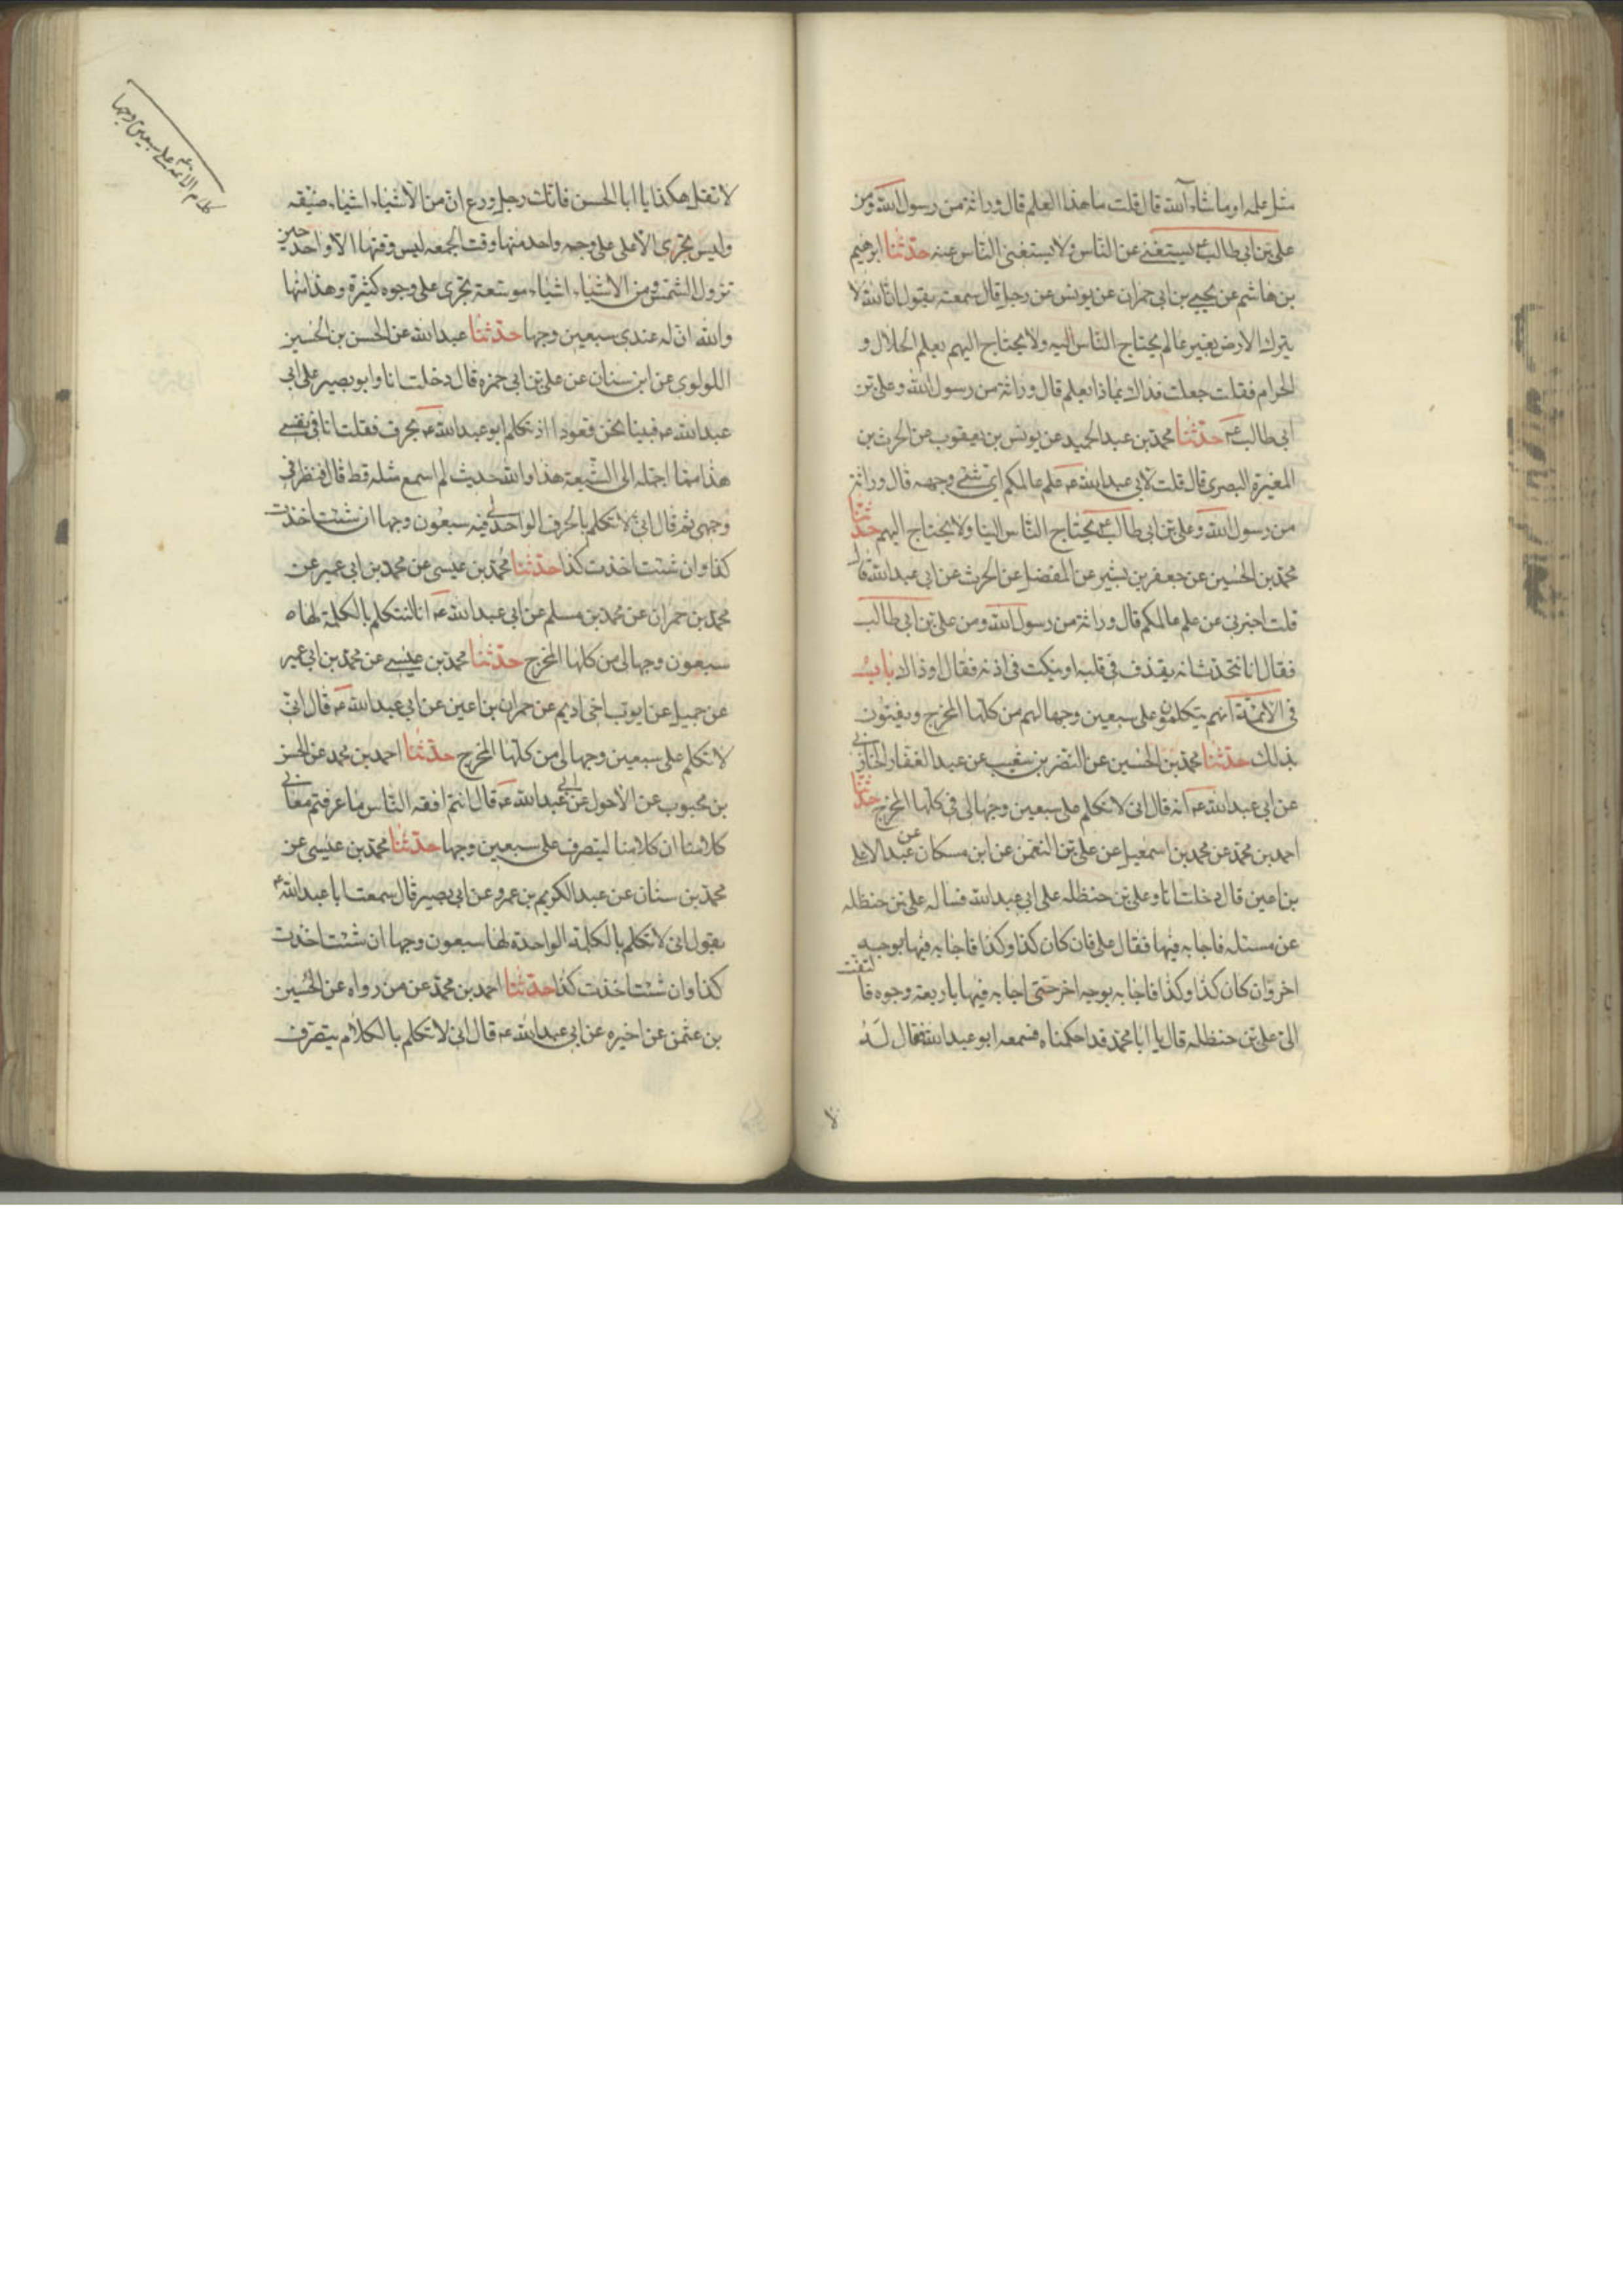 مثل علمه او ما شاء الله قال قلت ما هذا العلم قال وراثة من رسول الله ومن
على بن ابى طالب ع يستغنى عن الناس ولا يستغنى الناس عنه حدثنا ابرهيم
بن هاشم عن يحيى بن ابى عمران عن يونس عن رجل قال سمعته يقول ان الله لا
يترك الارض بغير عالم يحتاج الناس اليه ولا يحتاج اليهم يعلم الحلال و
الحرام فقلت جعلت فداك بماذا يعلم قال وراثة من رسول الله وعلى بن
ابى طالب ع حدثنا محمد بن عبد الحميد عن يونس بن يعقوب عن الحرث بن
المغيرة البصرى قال قلت لابى عبد الله ع علم عالمكم اى شئ وجهه قال وراثة
من رسول الله وعلى بن ابى طالب ع يحتاج الناس الينا ولا يحتاج اليهم حدثنا
محمد بن الحسين عن جعفر بن بشير عن المفضل عن الحرث عن ابى عبد الله قال
قلت اخبرنى عن علم عالمكم قال وراثة من رسول الله ومن على بن ابى طالب
فقال انا نتحدث انه يقذف فى قلبه او ينكت فى اذنه فقال او ذاك باب
فى الائمة انهم يتكلمون على سبعين وجها لهم من كلها المخرج ويفتون
بذلك حدثنا محمد بن الحسين عن النضر بن شعيب عن عبد الغفار الجازى
عن ابى عبد الله ع انه قال انى لاتكلم على سبعين وجها لى فى كلها المخرج حدثنا
احمد بن محمد عن محمد بن اسمعيل عن على بن النعمن عن ابن مسكان عن عبد الاعلى
بن اعين قال دخلت انا وعلى بن حنظله على ابى عبد الله فساله على بن حنظله
عن مسئله فاجابه فيها فقال على فان كان كذا وكذا فاجابه فيها بوجه
اخر وان كان كذا وكذا فاجابه بوجه اخر حتى اجابه فيها باربعة وجوه فالتفت
الى على بن حنظله قال يا ابا محمد قد احكمناه فسمعه ابو عبد الله فقال له
لا
كلام الائمه ع على سبعين وجها
لا تقل هكذا يا ابا الحسن فانك رجل ورع ان من الاشياء اشياء ضيقه
وليس تجرى الا على على وجه واحد منها وقت الجمعه ليس وقتها الا واحد حين
تزول الشمس ومن الاشياء اشياء موسعة تجرى على وجوه كثيرة وهذا منها
والله ان له عندى سبعين وجها حدثنا عبد الله عن الحسن بن الحسين
اللولوى عن ابن سنان عن على بن ابى حمزه قال دخلت انا وابو بصير على ابى
عبد الله ع فبينا نحن قعود ا اذ تكلم ابو عبد الله ع بحرف فقلت انا فى نفسى
هذا مما احمله الى الشيعة هذا والله حديث لم اسمع مثله قط قال فنظر فى
وجهى ثم قال انى لاتكلم بالحرف الواحد لى فيه سبعون وجها ان شئت اخذت
كذا وان شئت اخذت كذا حدثنا محمد بن عيسى عن محمد بن ابى عمير عن
محمد بن حمران عن محمد بن مسلم عن ابى عبد الله ع انا لنتكلم بالكلمة لها ه
سبعون وجها لى من كلها المخرج حدثنا محمد بن عيسى عن محمد بن ابى عمير
عن جميل عن ايوب اخى اديم عن حمران بن اعين عن ابى عبد الله ع قال انى
لاتكلم على سبعين وجها لى من كلها المخرج حدثنا احمد بن محمد عن الحسن
بن محبوب عن الاحول عن ابى عبد الله ع قال انتم افقه الناس ما عرفتم معانى
كلامنا ان كلامنا لينصرف على سبعين وجها حدثنا محمد بن عيسى عن
محمد بن سنان عن عبد الكريم بن عمرو عن ابى بصير قال سمعت ابا عبد الله ع
يقول انى لاتكلم بالكلمة الواحدة لها سبعون وجها ان شئت اخذت
كذا وان شئت اخذت كذا حدثنا احمد بن محمد عن من رواه عن الحسين
بن عثمن عن اخبره عن ابى عبد الله ع قال انى لاتكلم بالكلام يتصرف